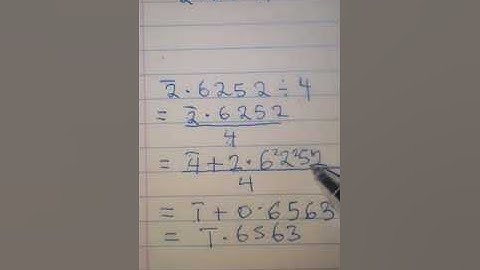 2̄.6252÷4
= 2̄.6252 / 4
= 4̄+2.6²2²5¹2 / 4
= 1̄+0.6563
= 1̄.6563